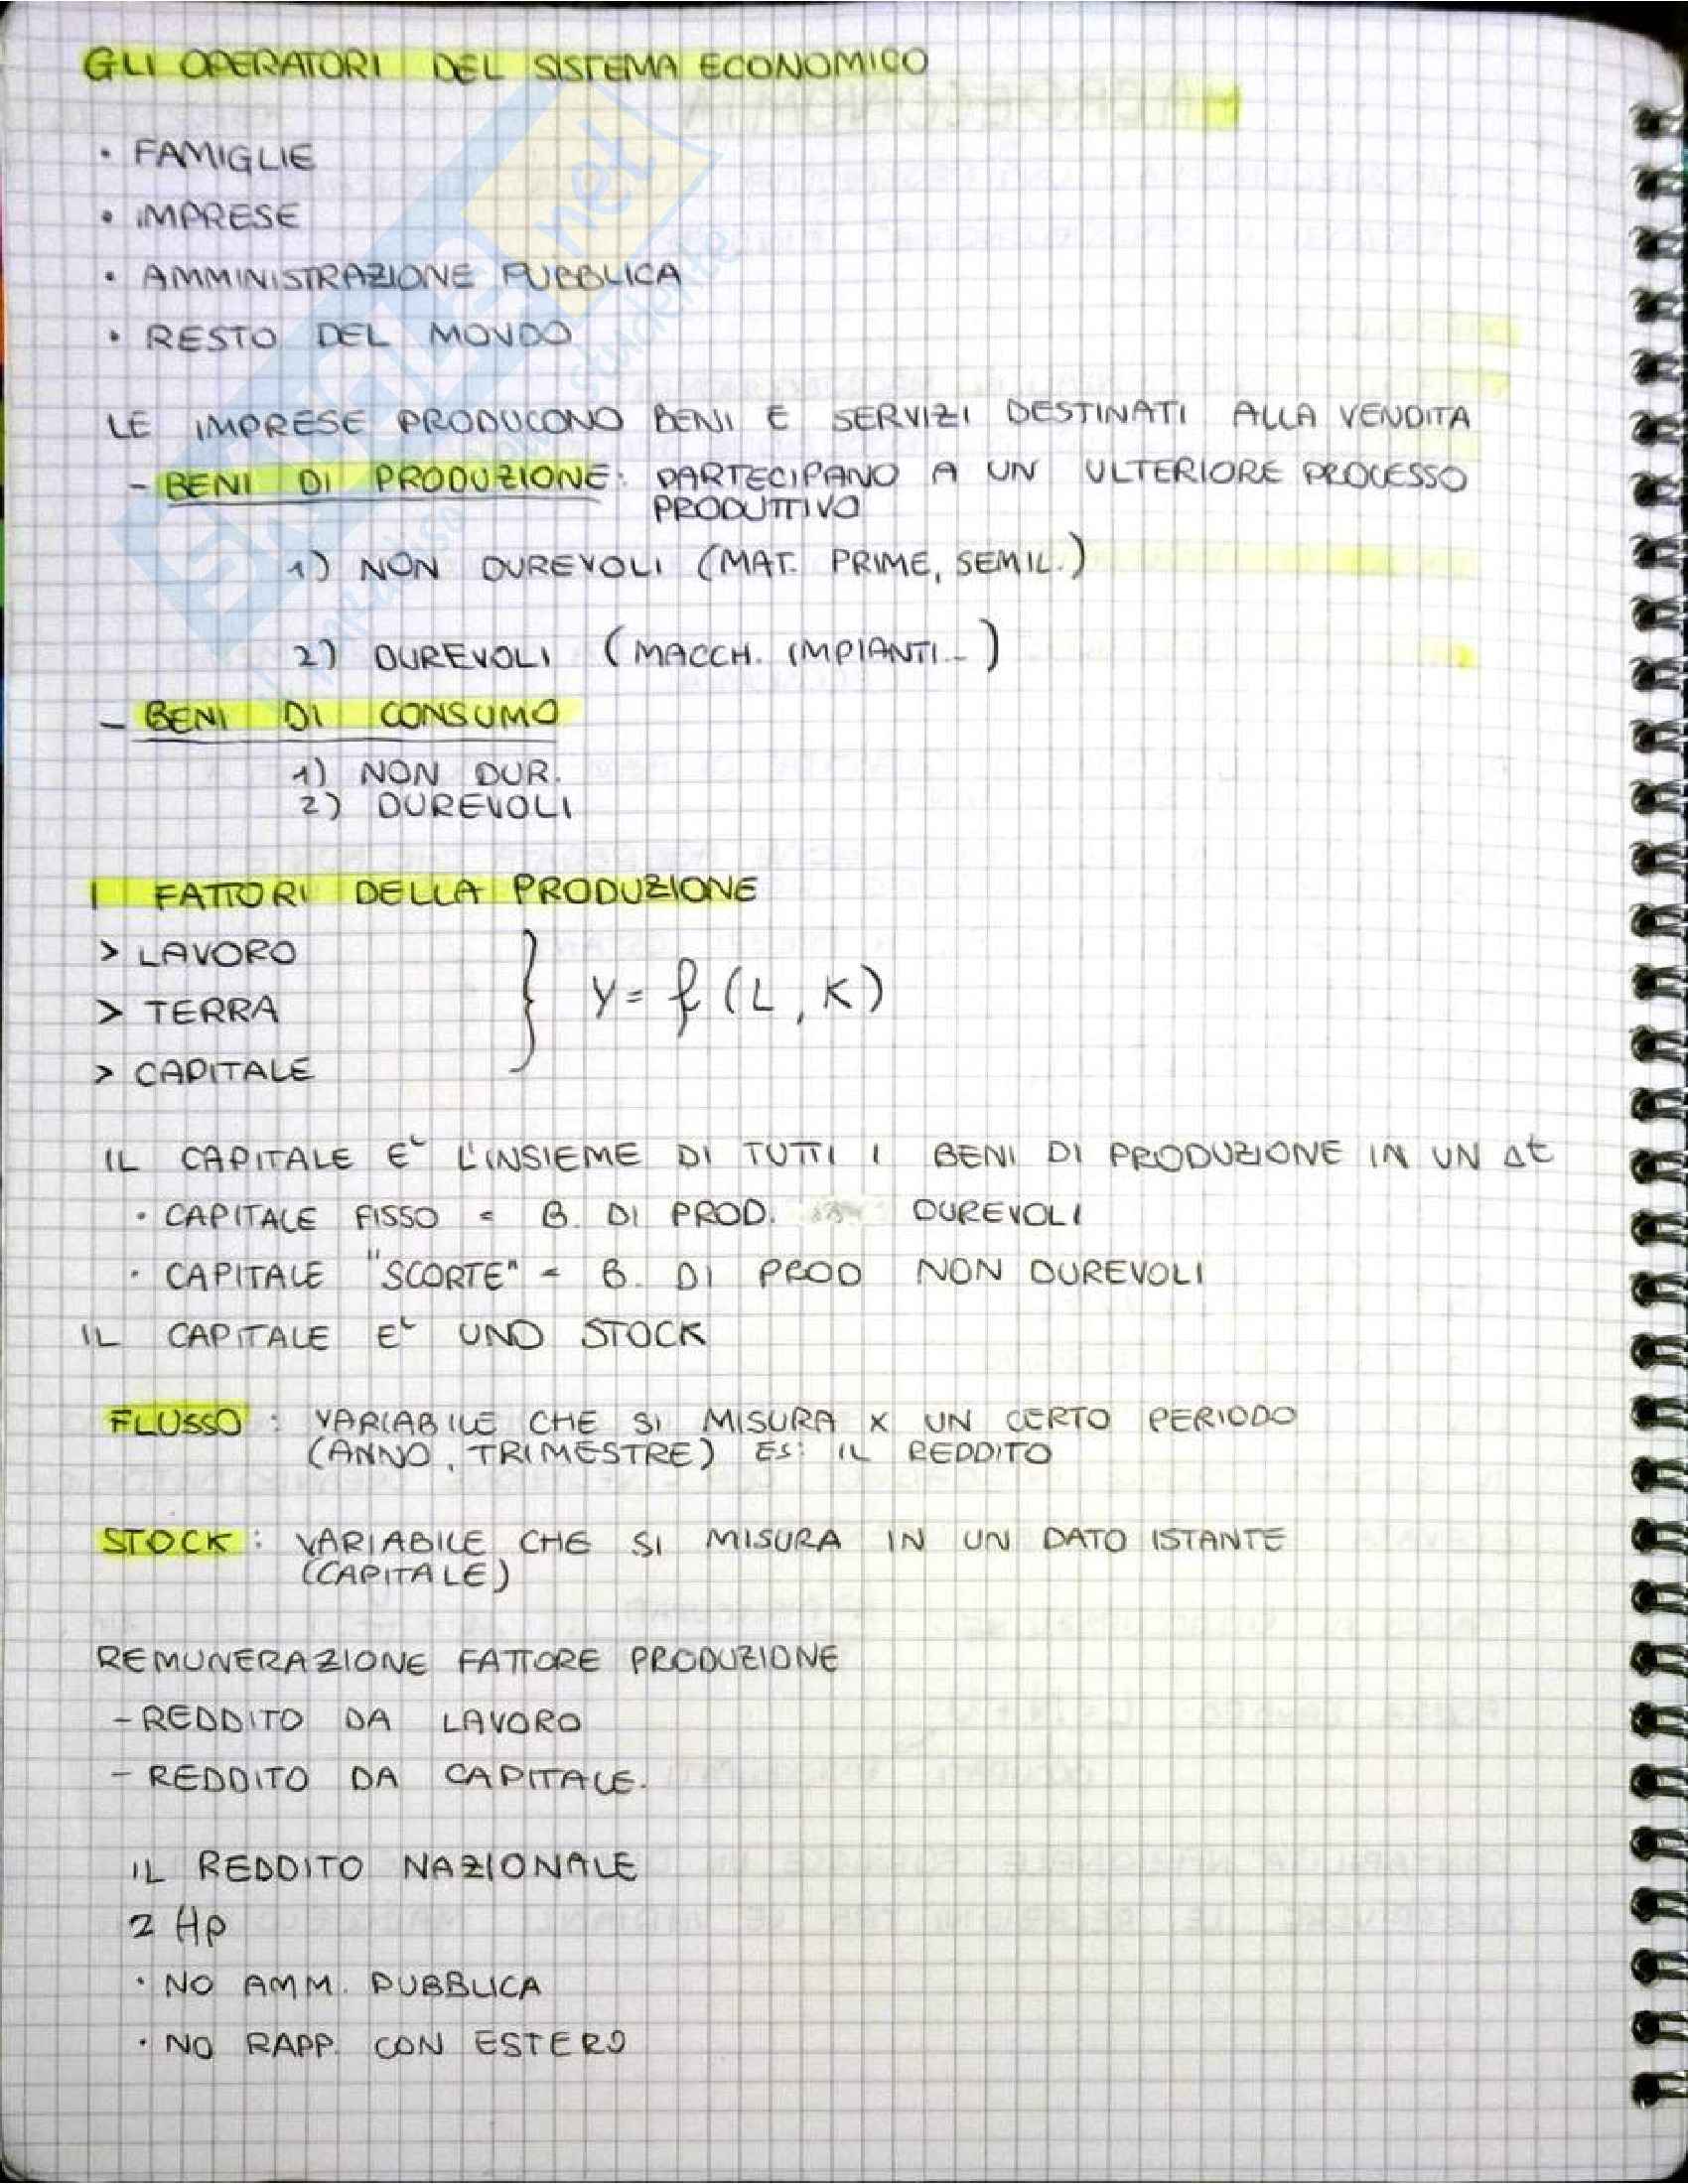 GLI OPERATORI DEL SISTEMA ECONOMICO
• FAMIGLIE
• IMPRESE
• AMMINISTRAZIONE PUBBLICA
• RESTO DEL MONDO
LE IMPRESE PRODUCONO BENI E SERVIZI DESTINATI ALLA VENDITA
- BENI DI PRODUZIONE: PARTECIPANO A UN ULTERIORE PROCESSO
PRODUTTIVO
1) NON DUREVOLI (MAT. PRIME, SEMIL.)
2) DUREVOLI (MACCH. IMPIANTI..)
- BENI DI CONSUMO
1) NON DUR.
2) DUREVOLI
I FATTORI DELLA PRODUZIONE
> LAVORO
> TERRA
> CAPITALE
} Y = f (L, K)
IL CAPITALE E' L'INSIEME DI TUTTI I BENI DI PRODUZIONE IN UN Δt
• CAPITALE FISSO = B. DI PROD. DUREVOLI
• CAPITALE "SCORTE" = B. DI PROD NON DUREVOLI
IL CAPITALE E' UNO STOCK
FLUSSO : VARIABILE CHE SI MISURA X UN CERTO PERIODO
(ANNO, TRIMESTRE) ES: IL REDDITO
STOCK : VARIABILE CHE SI MISURA IN UN DATO ISTANTE
(CAPITALE)
REMUNERAZIONE FATTORE PRODUZIONE
- REDDITO DA LAVORO
- REDDITO DA CAPITALE.
IL REDDITO NAZIONALE
2 Hp
• NO AMM. PUBBLICA
• NO RAPP. CON ESTERO